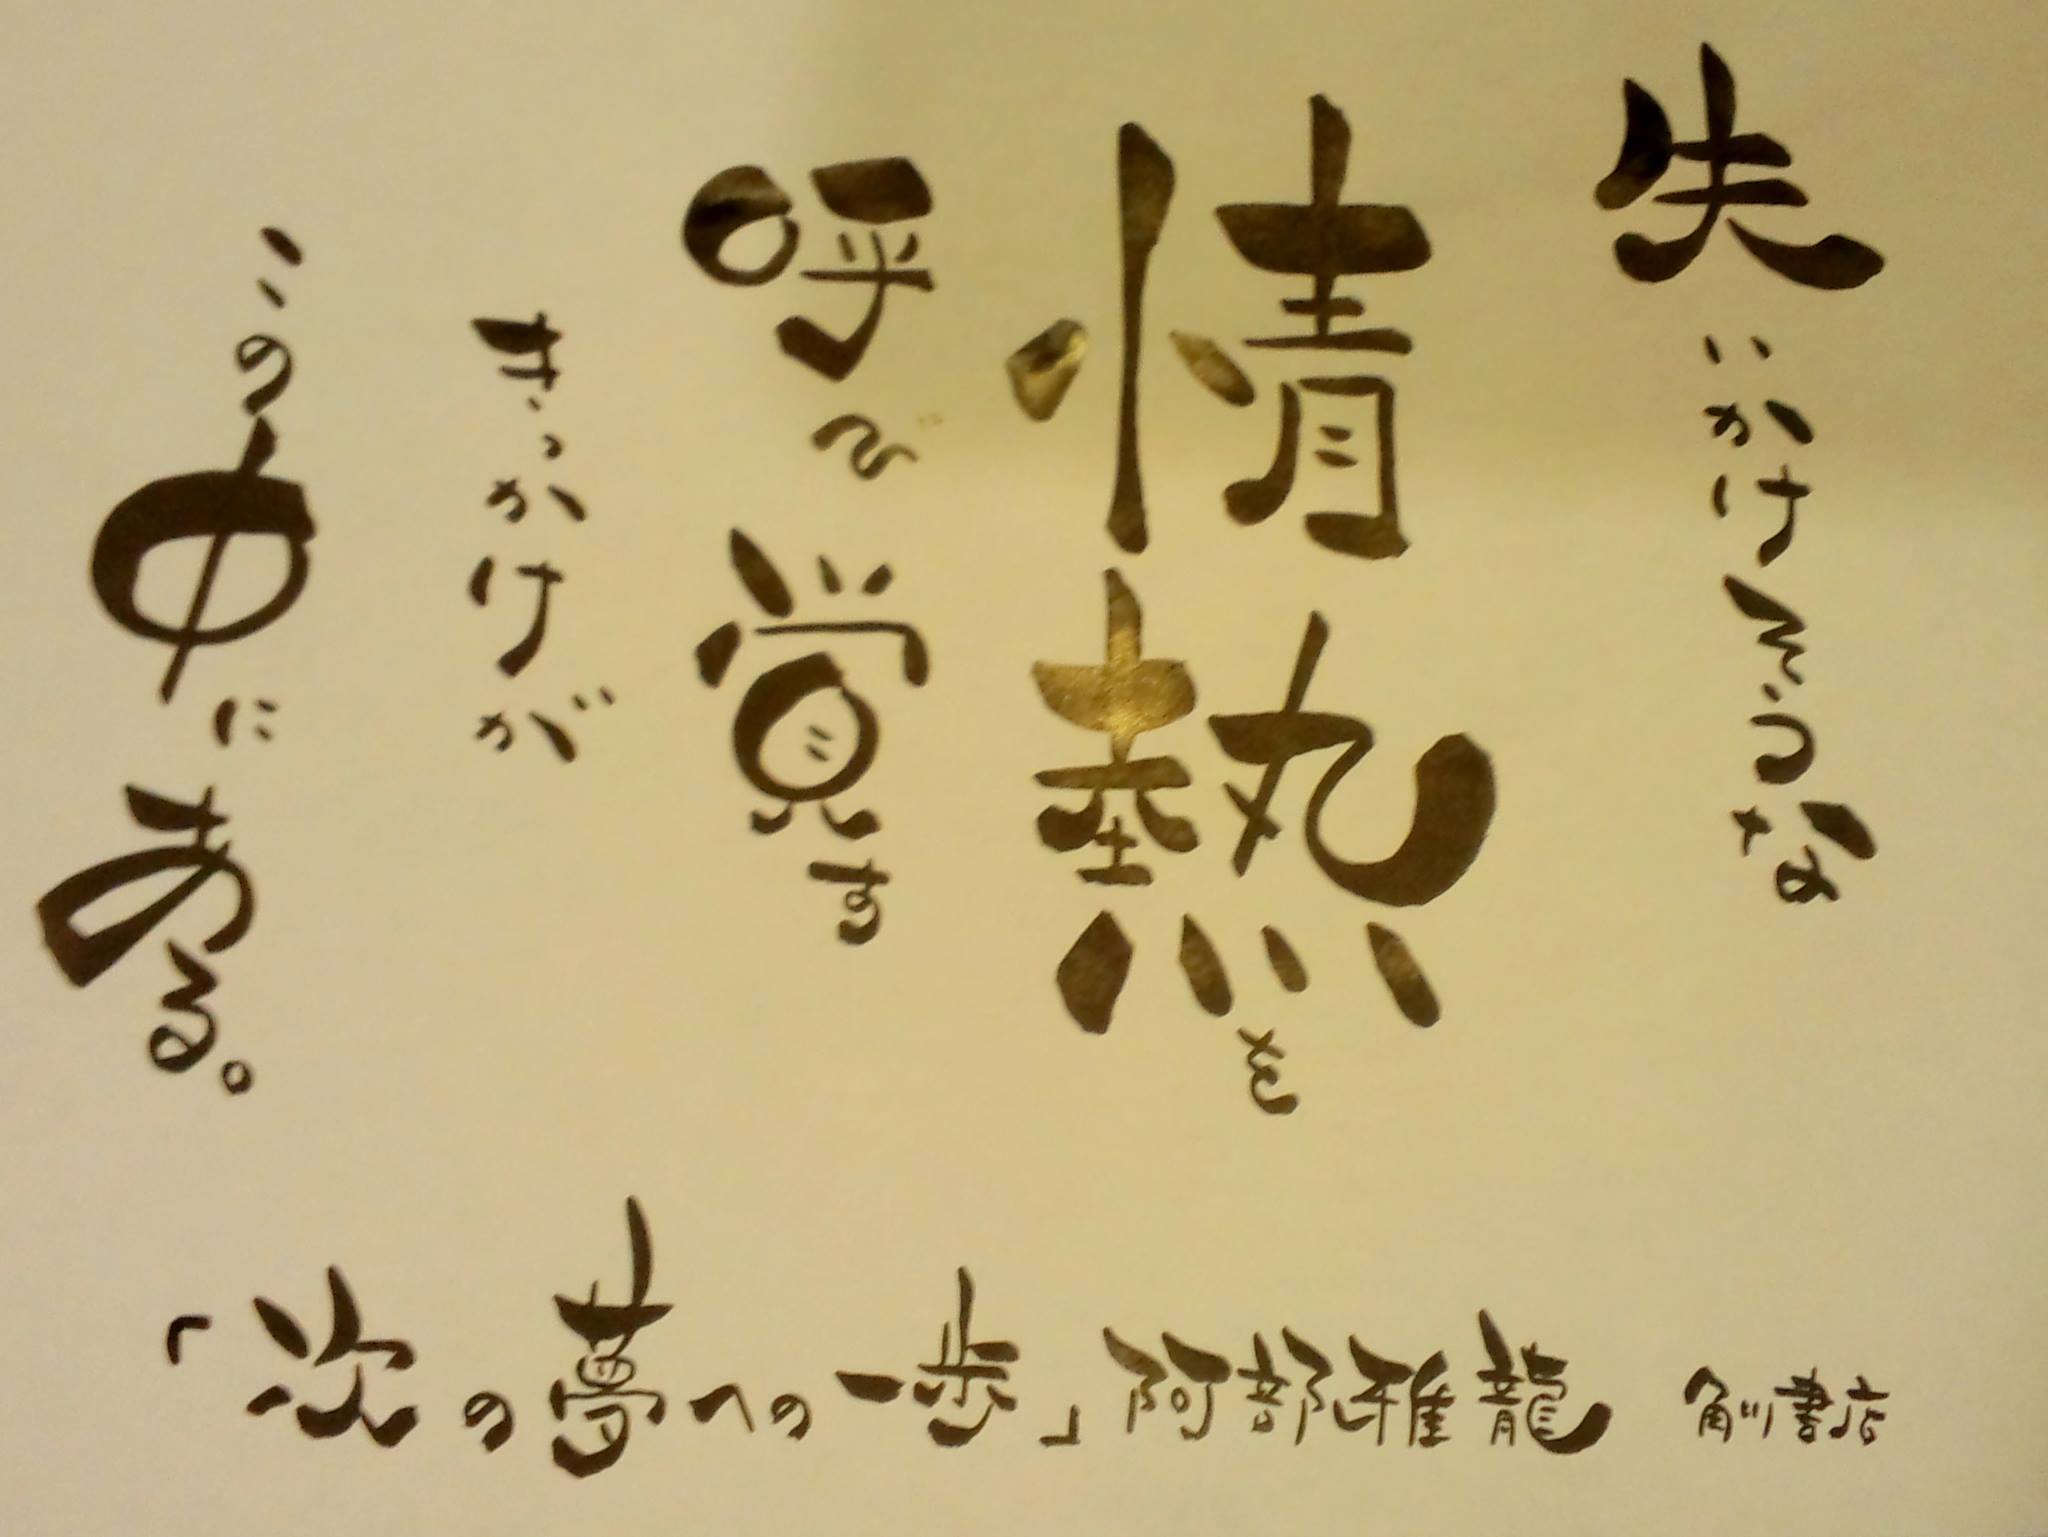 失いかけそうな
情熱を
呼び覚す
きっかけが
この中にある。
「次の夢への一歩」阿部雅龍 角川書店